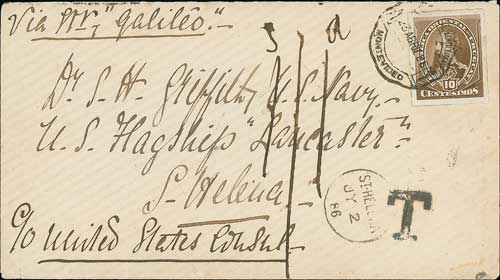 Via Str, "Galileo."
5 d
Dr. S. H. Griffith, U. S. Navy.
U. S. Flagship "Lancaster"
St Helena.
c/o United States Consul
MONTEVIDEO
10
CENTESIMOS
ST. HELENA
JY 2
86
T